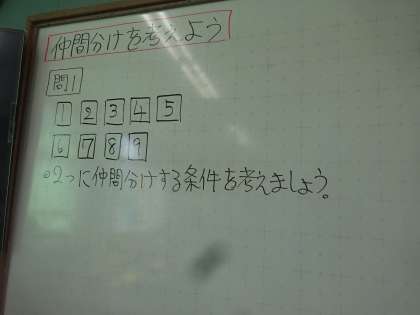 仲間分けを考えよう
問1
1 2 3 4 5
6 7 8 9
○2つに仲間分けする条件を考えましょう。